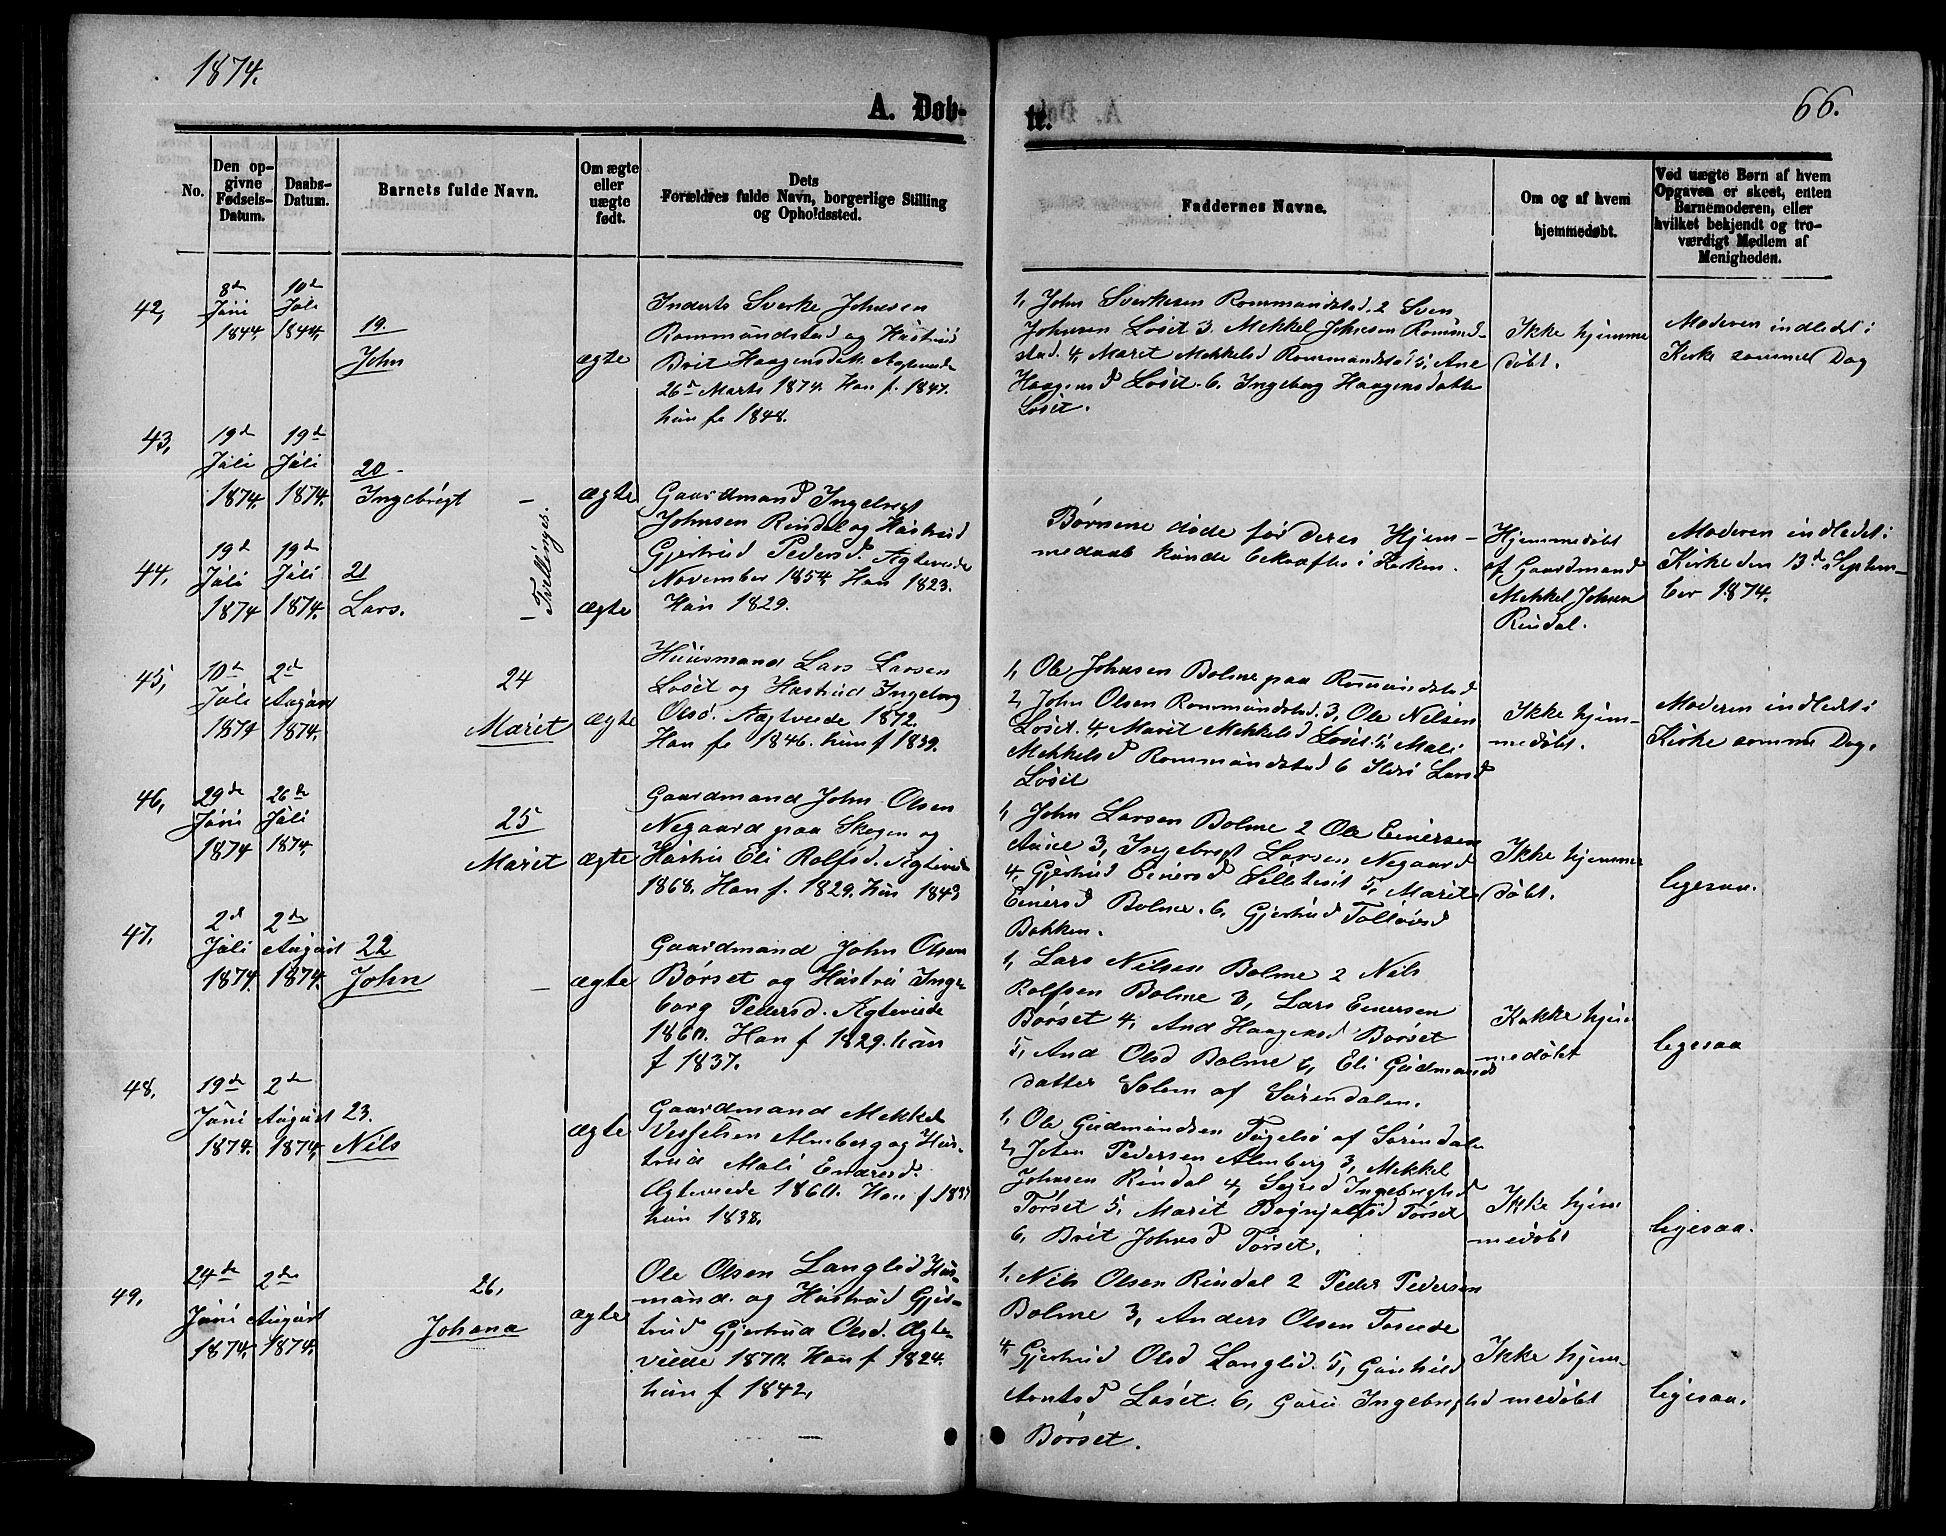 1874.
66.
A. Døb-
te.
No.
Den op-
givne
Fødsels-
Datum.
Daabs-
Datum.
Barnets fulde Navn.
Om ægte
eller
uægte
født.
Dets
Forældres fulde Navn, borgerlige Stilling
og Opholdssted.
Faddernes Navne.
Om og af hvem
hjemmedøbt.
Ved uægte Børn af hvem
Opgaven er skeet, enten
Barnemoderen, eller
hvilket bekjendt og tro-
værdigt Medlem af
Menigheden.
42,
8de
Juni
1844,
10de
Juli
1844,
19.
John
ægte
Inderts Sverke Johnsen
Rommundstad og Hustrud
Brit Haagensdtr.
26de Marts 1874. Han f. 1847.
hun fe 1848.
1, John Sverkesen Rommundstad, 2 Sven
Johnsen Løset 3, Mekkel Johnsen Romund-
stad. 4, Marit Mekkelsd Rommundstad 5, Ane
Haagensd Løset. 6, Ingeborg Haagensdatter
Løset.
Ikke hjemme
døbt.
Moderen indledet i
Kirke samme Dag
43,
19de
Juli
1874.
19de
Juli
1874.
20
Ingebrigt
Tvillinger.
ægte
Gaardmand Ingebrigt
Johnsen Rindal og Hustrud
Gjertrud Pedersd. Ægteviede
November 1854 Han 1823.
Hun 1829.
Børnene døde før deres Hjem-
medaab kunde bekræftes i Kirken.
Hjemmedøbt
af Gaardmand
Mekkel Johnsen
Rindal.
Moderen indledet i
Kirke den 13de Septem-
ber 1874.
44,
19de
Juli
1874
19de
Juli
1874.
21
Lars.
ægte
45,
10de
Juli
1874
2de
August
1874.
24
Marit
ægte
Huusmand Lars Larsen
Løset og Hustrud Ingeborg
Olsd. Ægteviede 1872.
Han fe 1846. hun f 1839.
1, Ole Johnsen Bolme paa Rommundstad
2, John Olsen Rommundstad. 3, Ole Nilsen
Løset. 4, Marit Mekkelsd Løset. 5, Mali
Mekkelsd Rommundstad 6 Larsd
Løset
Ikke hjem-
medøbt.
Moderen indledet i
Kirke samme Dag.
46,
29de
Juni
1874
26de
Juli
1874.
25
Marit
ægte
Gaardmand John Olsen
Negaard paa Skogen og
Hustru Eli Rolfsd. Ægteviede
1868. Han f. 1829. hun 1843
1, John Larsen Bolme 2 Ole Einersen
Aune 3, Ingebrigt Larsen Negaard
4, Gjertrud Einersd 5, Marit
Einersd Bolme. 6, Gjertrud
Bakken.
Ikke hjemme
døbt.
ligesaa.
47.
2d
Juli
1874.
2de
August
1874.
22
John
ægte
Gaardmand John Olsen
Børset og Hustru Inge-
borg Pedersd. Ægteviede
1860. Han f 1829. hun
f 1837.
1, Lars Nilsen Bolme 2 Nils
Rolfsen Bolme 3, Lars Einersen
Børset 4, And Haagensd Børset
5, And Olsd Bolme 6, Eli Gudmunds
datter Solem af Surendalen.
Ikke hjem
medøbt
ligesaa
48.
19de
Juni
1874.
2de
August
1874,
23.
Nils
ægte
Gaardmand Mekkel
Vesselsen Almberg og Hus-
trud Mali Einarsd.
Ægteviede 1860. Han f. 1837
hun 1838.
1, Ole Gudmundsen af Surendale
2, Johen Pedersen Almberg 3, Mekkel
Johnsen Rindal 4, Ingebrigtsd
Tørset 5, Marit Tørset
6, Brit Johnsd Tørset.
Ikke hjem
medøbt
ligesaa.
49,
24de
Juni
1874.
2de
August
1874.
26,
Johana
ægte
Ole Olsen Langlid Hus-
mand. og Hustrud Gjer-
trud Gjertrud Olsd. Ægte-
viede 1870. Han f 1824.
hun f 1842,
1, Nils Olsen Rindal 2 Peder Pedersen
Bolme 3, Anders Olsen
4, Gjertrud Olsd Langlid. 5, Gunhild
Arntsd Løset. 6, Guru Ingebrigtsd
Børset.
Ikke hjem-
medøbt
ligesaa.